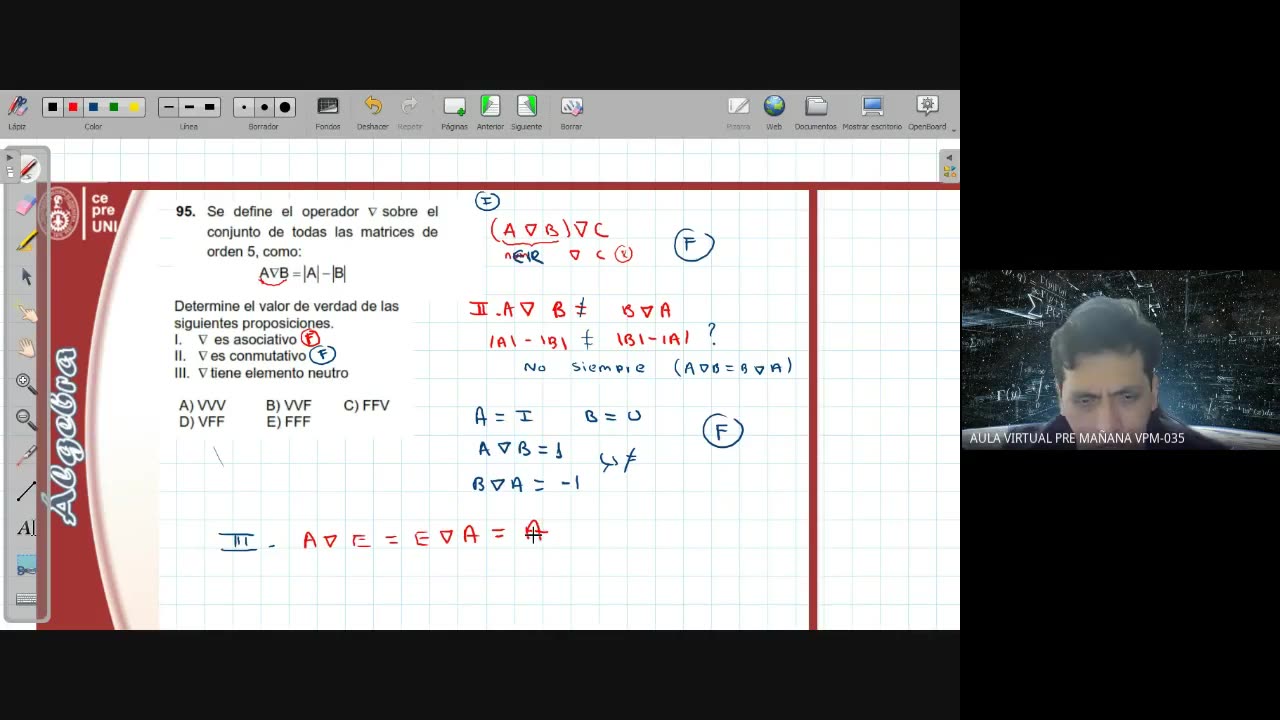 Lápiz Color Línea Borrador Fondos Deshacer Repetir Páginas Anterior Siguiente Borrar Pizarra Web Documentos Mostrar escritorio OpenBoard
ce
pre
UNI
Álgebra
95. Se define el operador ∇ sobre el
conjunto de todas las matrices de
orden 5, como:
A∇B = |A| − |B|
Determine el valor de verdad de las
siguientes proposiciones.
I. ∇ es asociativo F
II. ∇ es conmutativo F
III. ∇ tiene elemento neutro
A) VVV B) VVF C) FFV
D) VFF E) FFF
I
(A ∇ B) ∇ C
∈ℝ ∇ C
F
II. A ∇ B ≠ B ∇ A
|A| - |B| ≠ |B| - |A| ?
No siempre (A∇B = B∇A)
A = I B = 0
A ∇ B = 1
↳ ≠
B ∇ A = -1
F
III. A ∇ E = E ∇ A = A
AULA VIRTUAL PRE MAÑANA VPM-035